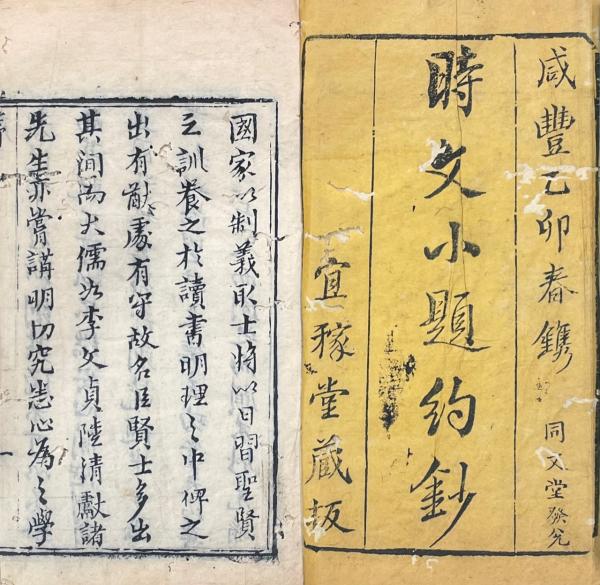 咸豐乙卯春鐫
同文堂發兌
時文小題約鈔
宜稼堂藏板
國家以制義取士將以日習聖賢
之訓養之於讀書明理之中俾之
出有猷處有守故名臣賢士多出
其间而大儒如李文貞陸清獻諸
先生亦嘗講明切究悉心為之學